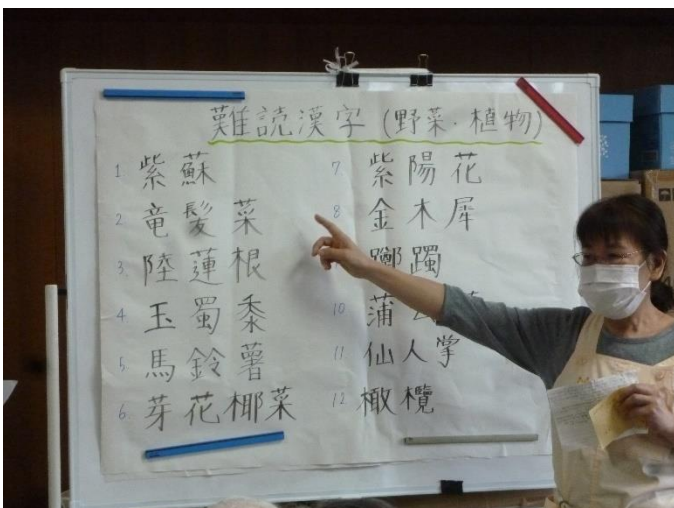 難読漢字(野菜・植物)
1. 紫蘇
2. 竜髪菜
3. 陸蓮根
4. 玉蜀黍
5. 馬鈴薯
6. 芽花椰菜
7. 紫陽花
8 金木犀
躑躅
10 蒲
11 仙人掌
12 橄欖